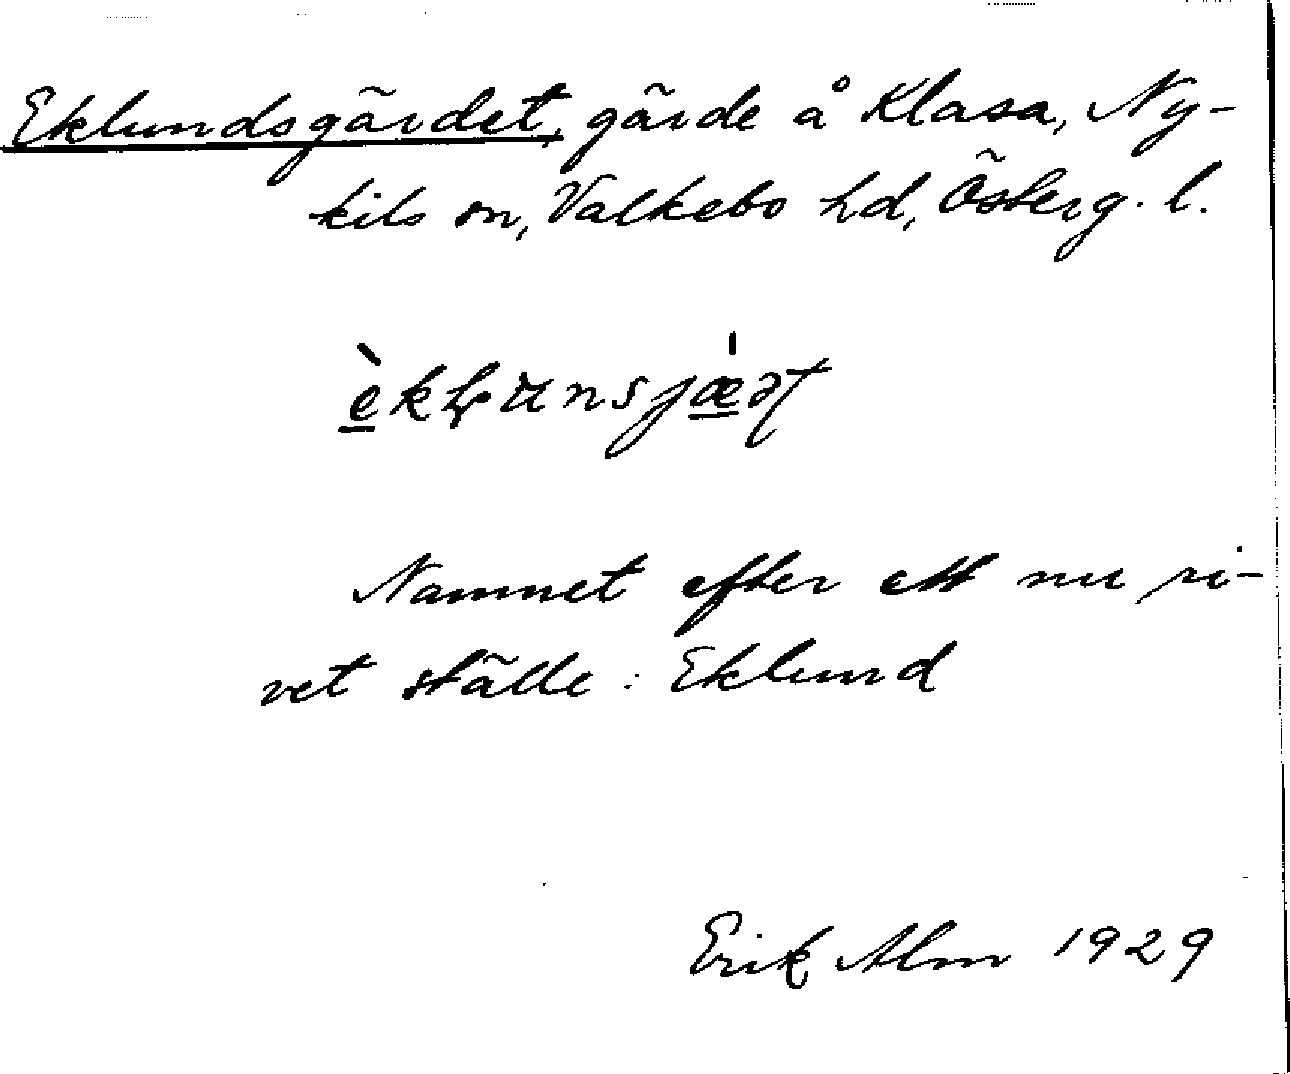 Eklundsgärdet, gärde å Klasa, Ny-
kils sn, Valkebo hd, Österg. l.
Namnet efter ett nu ri-
vet ställe: Eklund
Erik Alm 1929